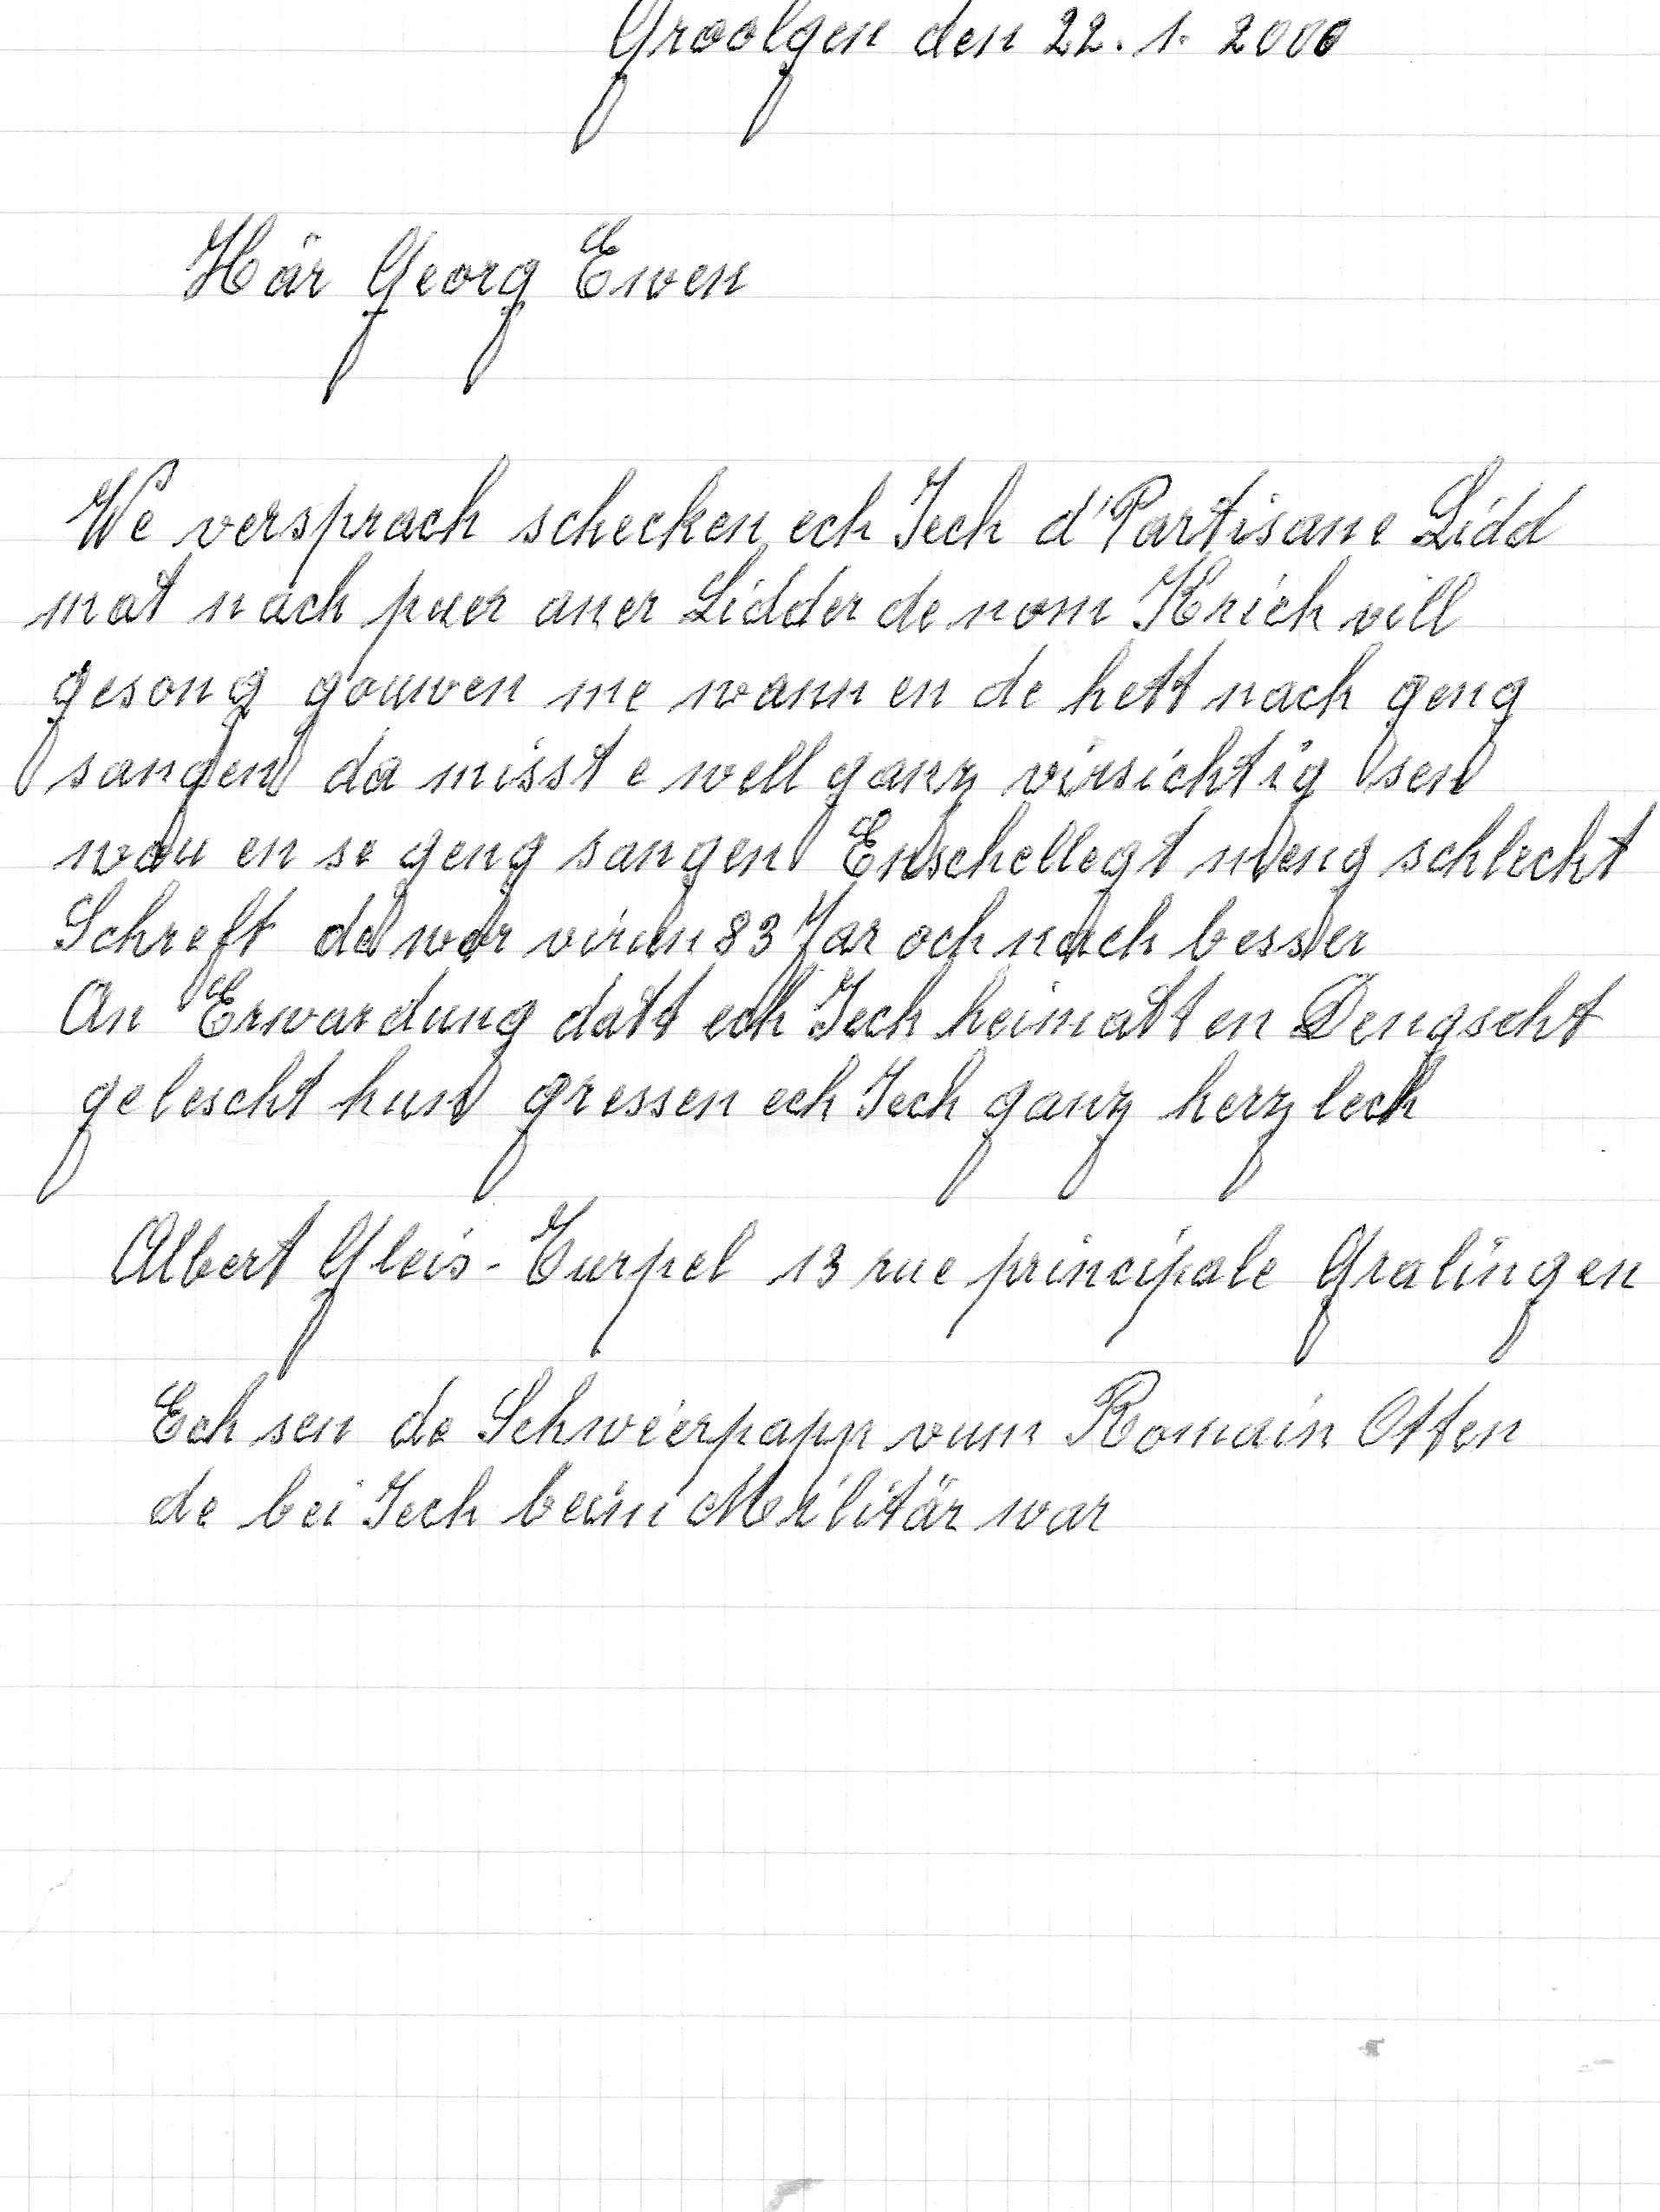 Groolgen den 22. 1. 2000
Här Georg Ewen
We versprach schecken ech Iech d'Partisane Lidd
mat nach puer aner Lidder de nom Krich vill
gesong gouwen me wann en de hett nach geng
sangen da misst e well ganz virsichtig sen
wou en se geng sangen Enschellegt meng schlecht
Schreft de war virun 83 Jar och nach besser
An Erwardung datt ech Iech heimatt en Dengscht
gelescht hun gressen ech Iech ganz herzlech
Albert Gleis-Turpel 13 rue principale Gralingen
Ech sen de Schwéierpapp vum Romain Otten
de bei Iech beim Militär war